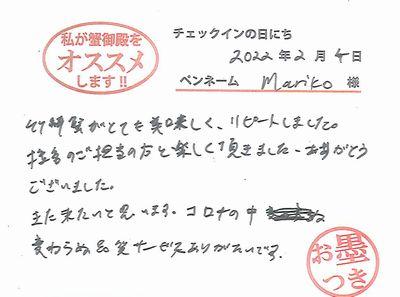 私が蟹御殿を
オススメ
します!!
チェックインの日にち
2022年2月4日
ペンネーム Mariko 様
竹崎蟹がとても美味しく、リピートしました。
担当のご担当の方と楽しく頂きました。ありがとう
ございました。
また来たいと思います。コロナの中
変わらぬ品質サービスありがたいです。
お墨
つき